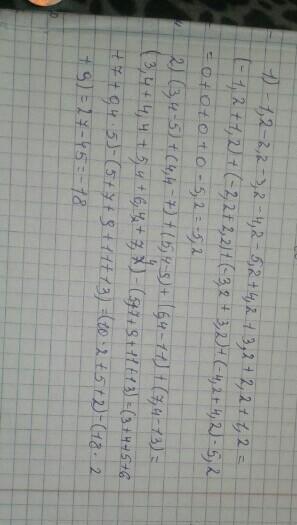 1) -1,2-2,2-3,2-4,2-5,2+4,2+3,2+2,2+1,2=
(-1,2+1,2)+(-2,2+2,2)+(-3,2+3,2)+(-4,2+4,2)-5,2
=0+0+0+0-5,2=-5,2
2) (3,4-5)+(4,4-7)+(5,4-9)+(6,4-11)+(7,4-13)=
(3,4+4,4+5,4+6,4+7,4)-(5+7+9+11+13)=(3+4+5+6
+7+0,4·5)-(5+7+9+11+13)=(10·2+5+2)-(18·2
+9)=27-45=-18